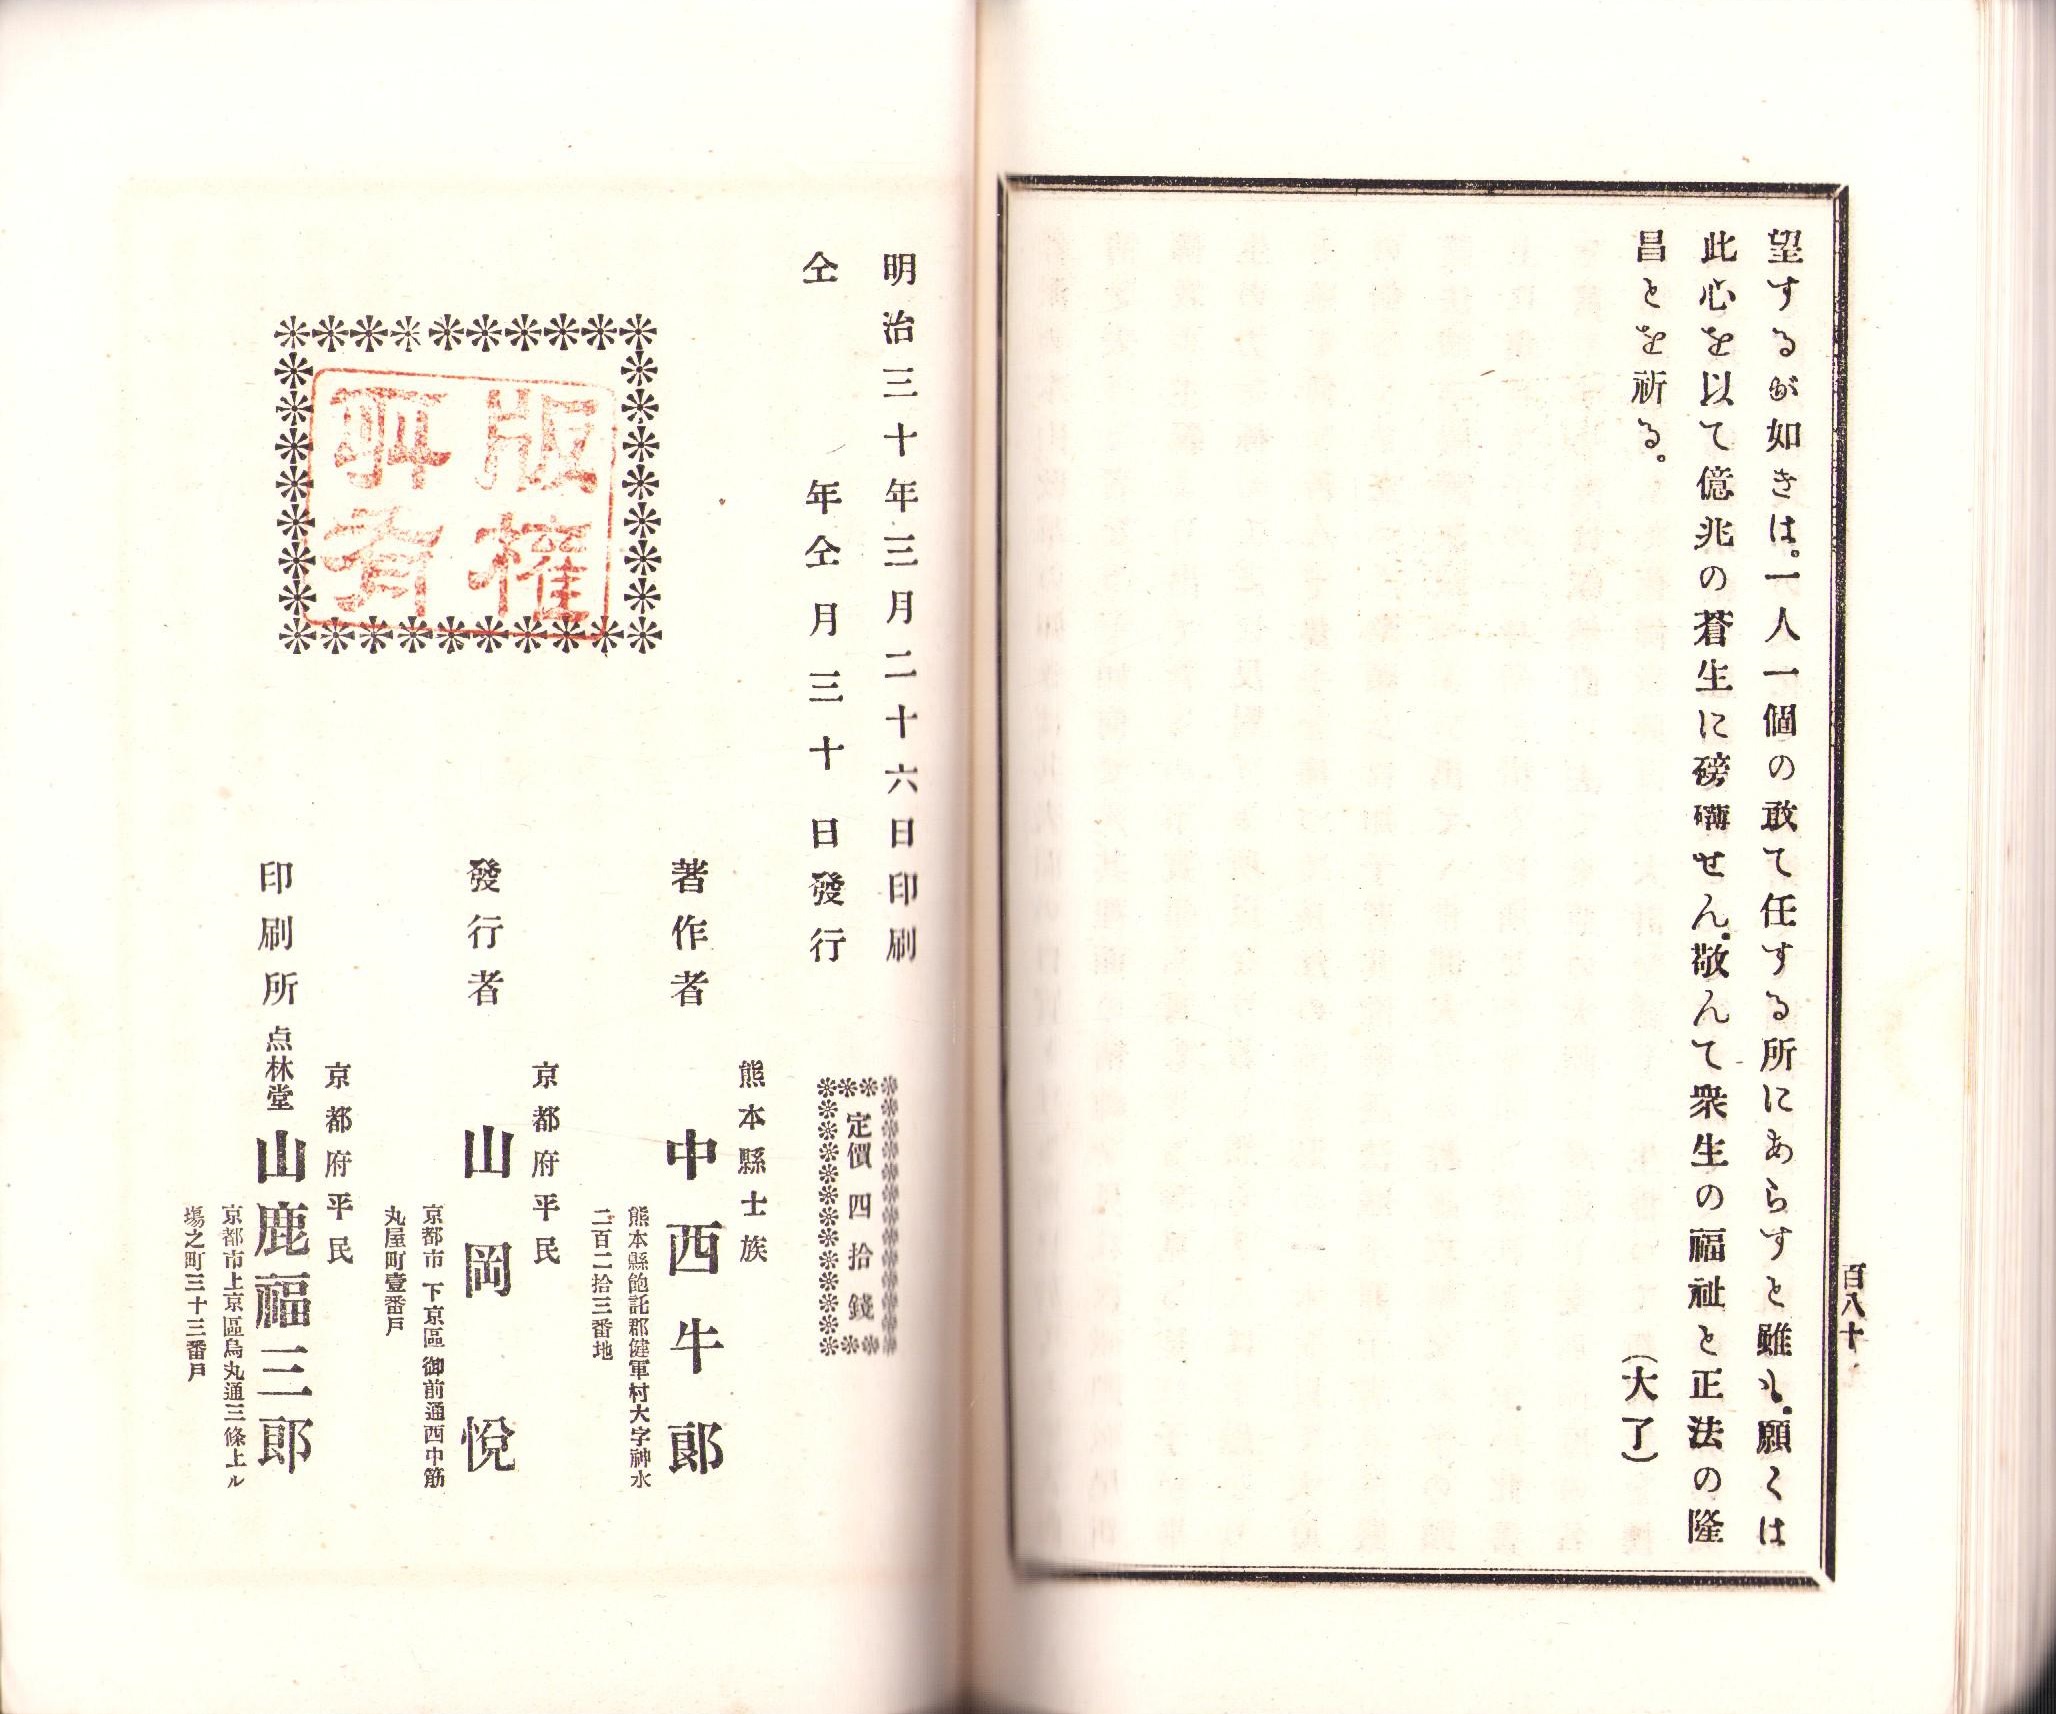 望するが如きは。一人一個の敢て任する所にあらすと雖も。願くは
此心を以て億兆の蒼生に磅礴せん。敬んて衆生の福祉と正法の隆
昌とを祈る。
(大了)
百八十
明治三十年三月二十六日印刷
仝年仝月三十日發行
定價四拾錢
版權所有
熊本縣士族
著作者 中西牛郎
熊本縣飽託郡健軍村大字神水
二百二拾三番地
京都府平民
發行者 山岡悅
京都市下京區御前通西中筋
丸屋町壹番戶
京都府平民
印刷所 点林堂 山鹿福三郎
京都市上京區烏丸通三條上ル
塲之町三十三番戶